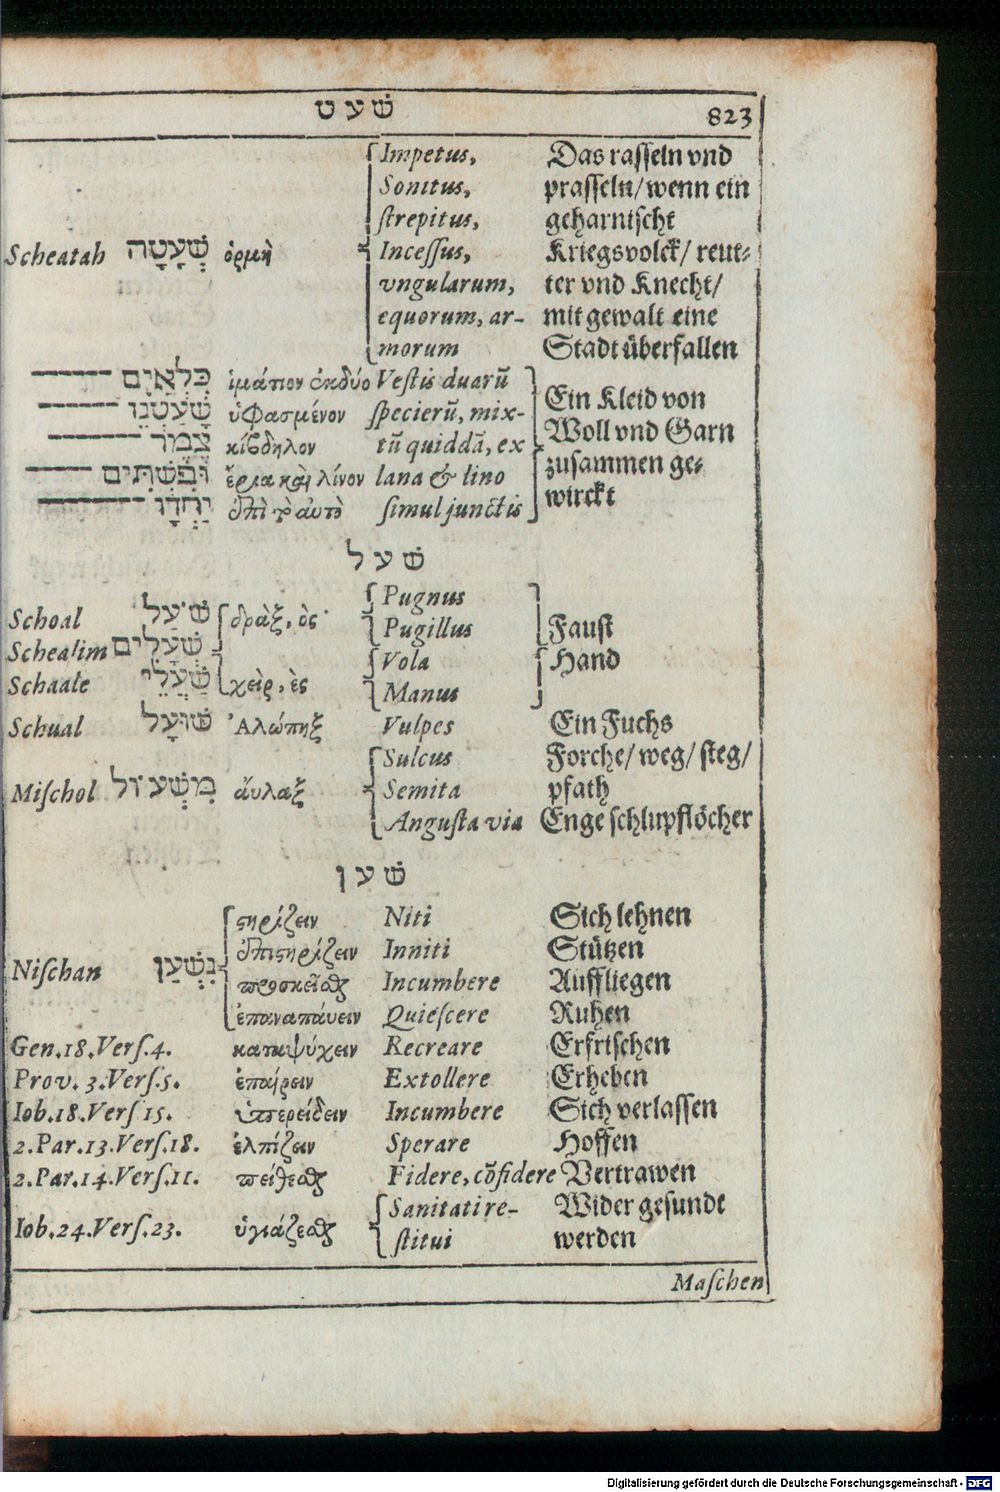 שׁעט 823
Impetus, Das rasseln vnd
Sonitus, prasseln/wenn ein
strepitus, geharnischt
Scheatah שְׁעָטָה ὁρμὴ Incessus, Kriegsvolck/ reut-
vngularum, ter vnd Knecht/
equorum, ar- mit gewalt eine
morum Stadt überfallen
כִּלְאַיִם ἱμάτιον ἐκ δύο Vestis duarũ
שַׁעַטְנֵז ὑφασμένον specierũ, mix- Ein Kleid von
צֶמֶר κίβδηλον tũ quiddã, ex Woll vnd Garn
וּפִשְׁתִּים ἔρια καὶ λίνον lana & lino zusammen ge-
יַחְדָּו ἐπὶ τὸ αυτὸ simul junctis wirckt
שׁעל
Pugnus
Schoal שֹׁעַל δρὰξ, ὸς Pugillus Faust
Schealim שְׁעָלִים Vola Hand
Schaale שַׁעֲלֵי χεὶρ, ὲς Manus
Schual שׁוּעָל Ἀλώπηξ Vulpes Ein Fuchs
Sulcus Forche/ weg/ steg/
Mischol מִשְׁעוֹל ἄυλαξ Semita pfath
Angusta via Enge schlupflöcher
שׁען
στηρίζειν Niti Sich lehnen
ἐπιστηρίζειν Inniti Stützen
Nischan נִשְׁעַן προσκεῖσθαι Incumbere Auffliegen
ἐπαναπάυειν Quiescere Ruhen
Gen.18.Vers.4. καταψύχειν Recreare Erfrischen
Prov. 3.Vers.5. ἐπαίρειν Extollere Erheben
Iob.18.Vers 15. ὑπερείδειν Incumbere Sich verlassen
2.Par.13.Vers.18. ἐλπίζειν Sperare Hoffen
2.Par.14.Vers.11. πείθεσθαι Fidere, cõfidere Vertrawen
Sanitati re- Wider gesundt
Iob.24.Vers.23. ὑγιάζεσθαι stitui werden
Maschen
Digitalisierung gefördert durch die Deutsche Forschungsgemeinschaft - DFG